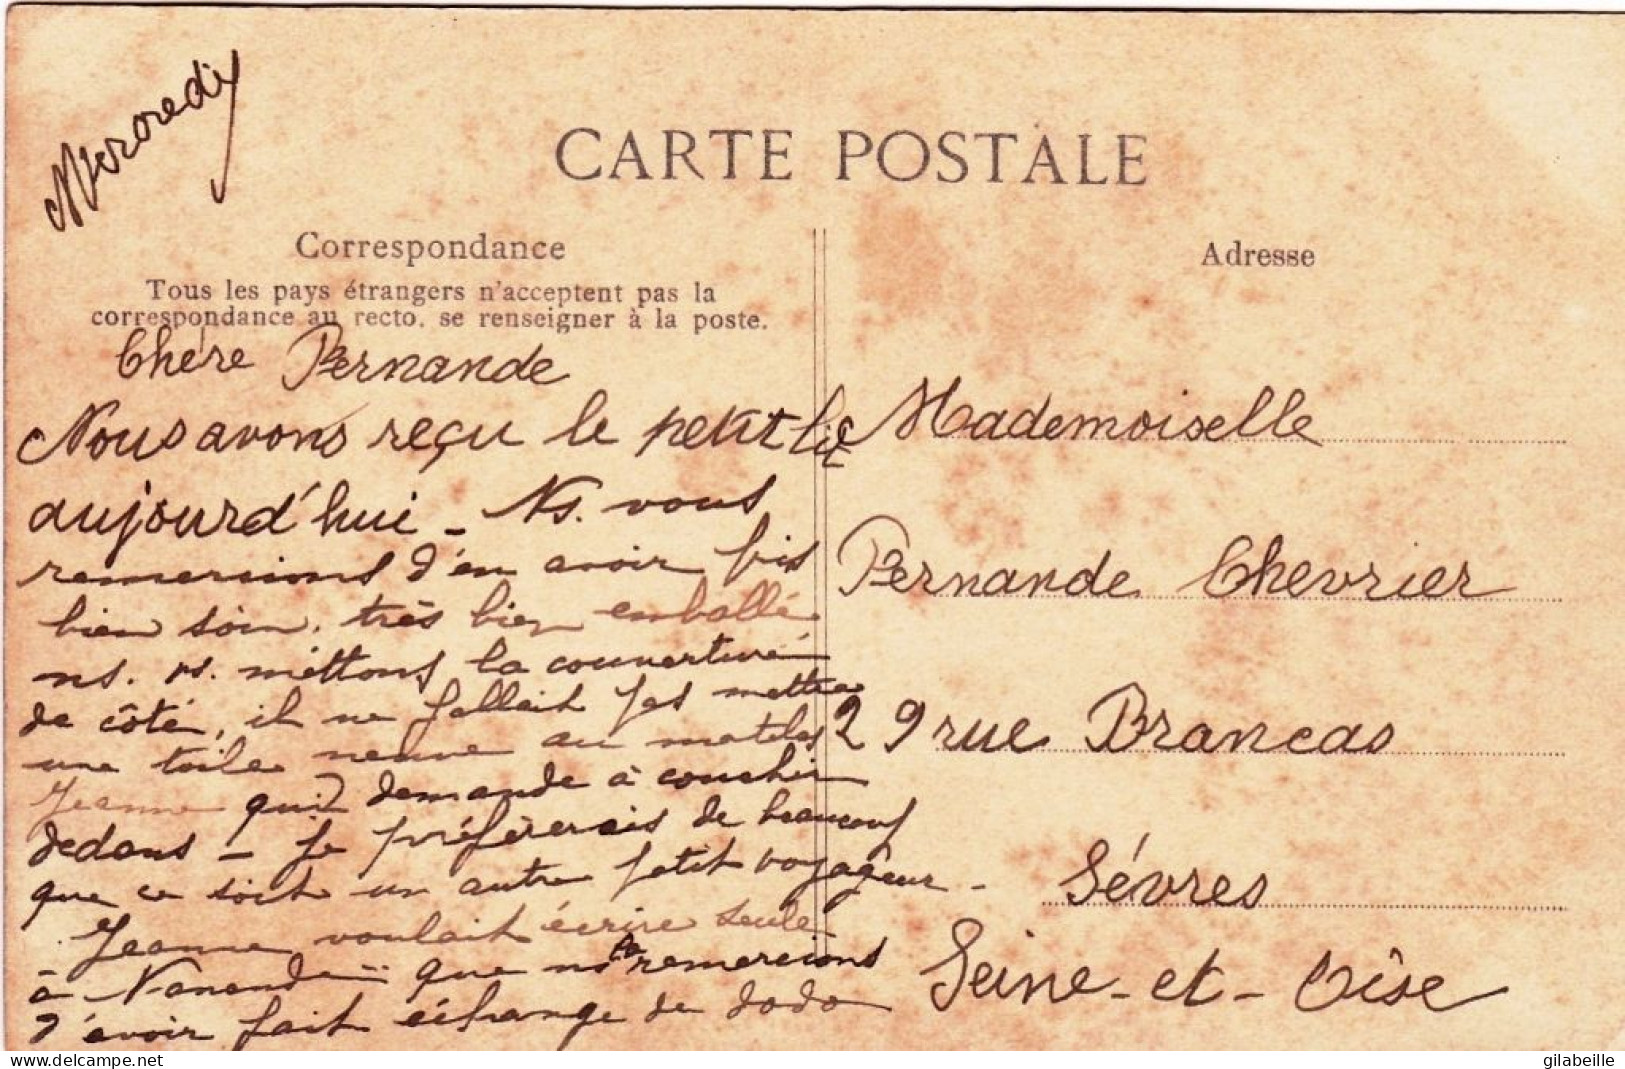 Mercredi
CARTE POSTALE
Correspondance
Tous les pays étrangers n'acceptent pas la
correspondance au recto. se renseigner à la poste.
Chère Fernande
Nous avons reçu le petit lit
aujourd'hui - Ns. vous
remercions d'en avoir pris
bien soin, très bien emballé
ns. ns. mettons la couverture
de côté, il ne fallait pas mettre
une toile neuve au matelas
Jeanne qui demande à coucher
dedans - je préfèrerais de beaucoup
que ce soit un autre petit voyageur -
Jeanne voulait écrire seule
à Nanande que ns la remercions
d'avoir fait échange de dodo
Adresse
Mademoiselle
Fernande Chevrier
29 rue Brancas
Sèvres
Seine-et-Oise
delcampe.net
gilabeille